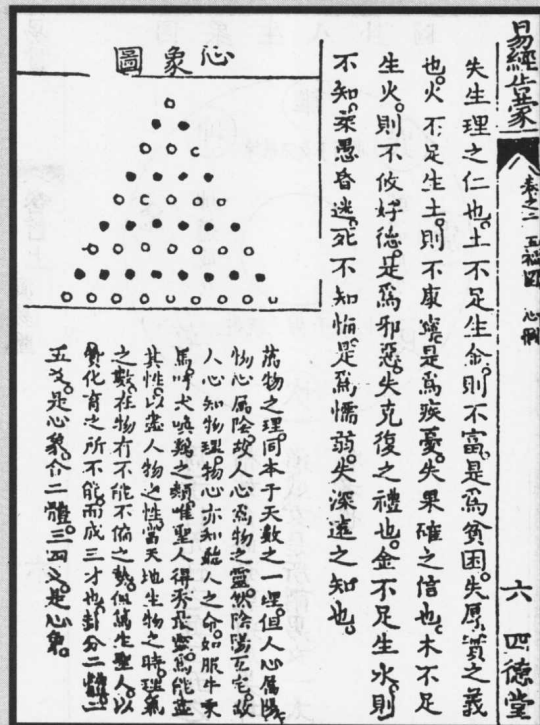 易經啓蒙
卷之二 五福圖 心觀
六 四德堂
失生理之仁也。土不足生金。則不富。是爲貧困。失厚質之義
也。火不足生土。則不康寧。是爲疾憂。失果確之信也。木不足
生火。則不攸好德。是爲邪惡。失克復之禮也。金不足生水。則
不知。柔愚昏迷。死不知悔。是爲懦弱。失深遠之知也。
心象圖
萬物之理。同本于天數之一理。但人心屬陽。
物心屬陰。故人心爲物之靈。然陰陽互宅。故
人心知物理。物心亦知聽人之命。如服牛乘
馬。呼犬喚鷄之類。惟聖人得秀最靈。爲能盡
其性。以盡人物之性。當天地生物之時。理氣
之數。在物有不能不偏之勢。但篤生聖人。以
贊化育之所不能。而成三才也。卦分二體。
五爻。是心象。合二體。三四爻。是心象。